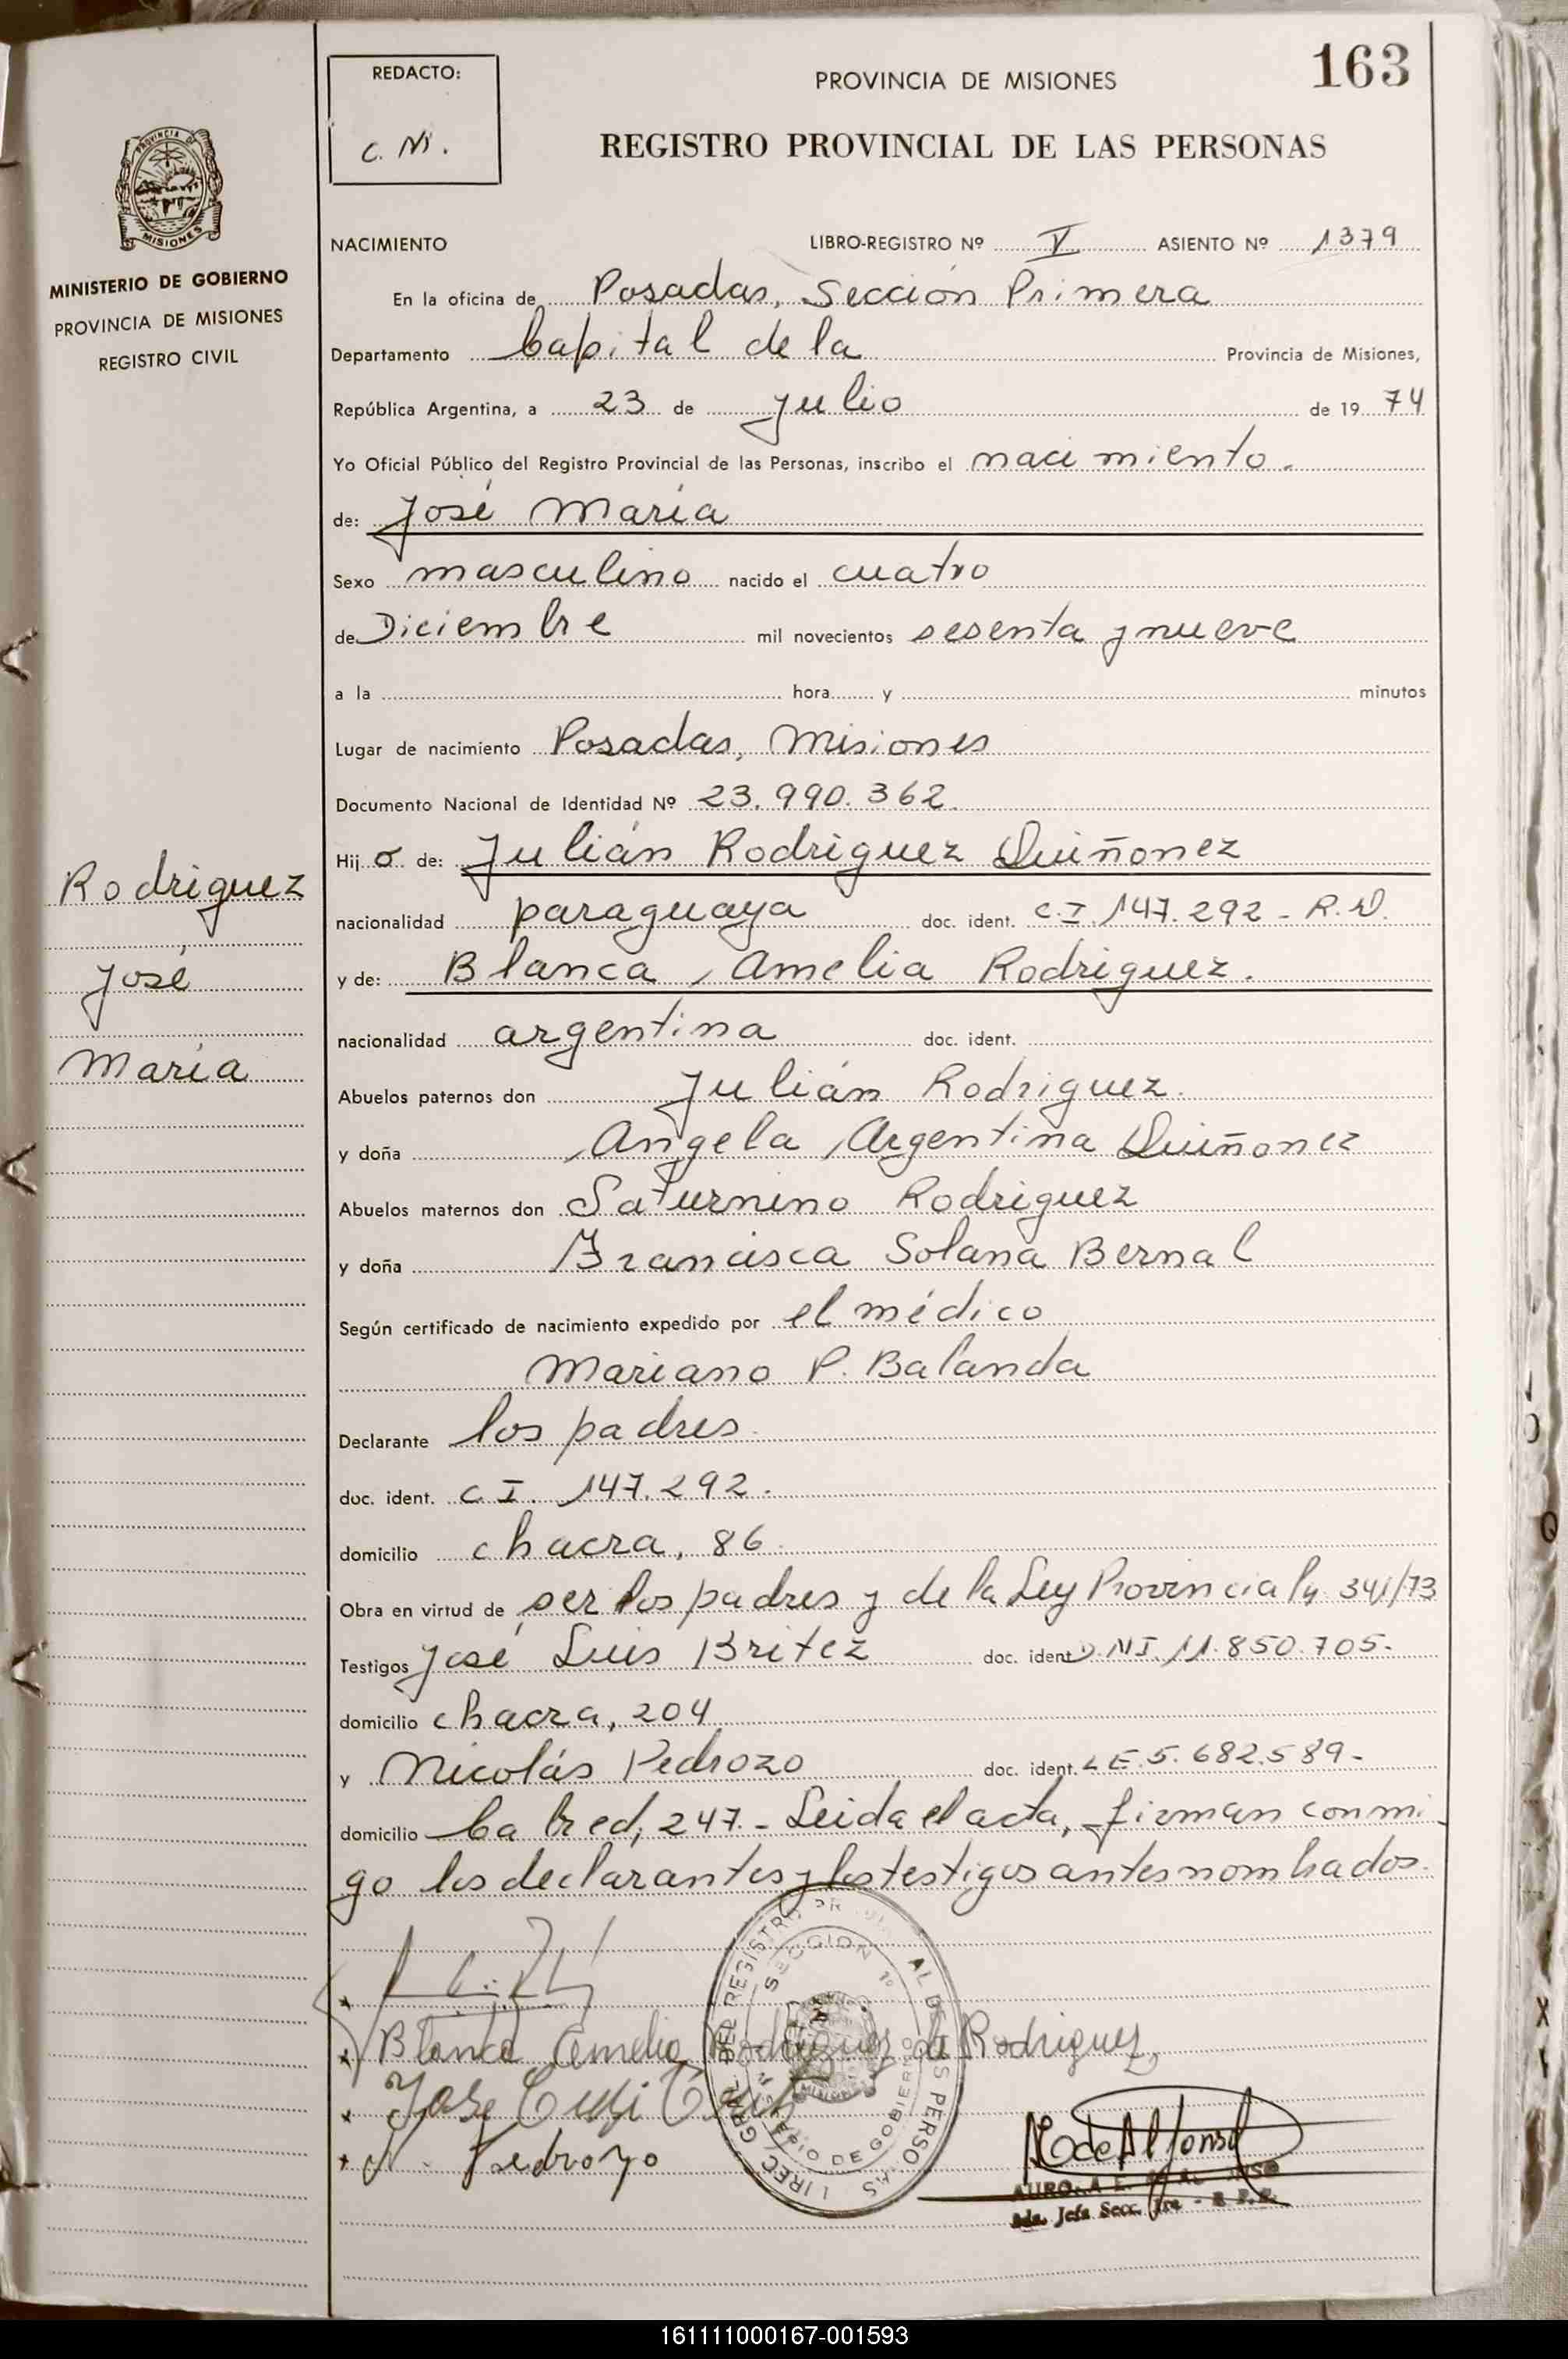 163
REDACTO:
C. M.
PROVINCIA DE MISIONES
REGISTRO PROVINCIAL DE LAS PERSONAS
PROVINCIA DE
MISIONES
MINISTERIO DE GOBIERNO
PROVINCIA DE MISIONES
REGISTRO CIVIL
Rodriguez
José
María
NACIMIENTO LIBRO-REGISTRO Nº V ASIENTO Nº 1379
En la oficina de Posadas, Sección Primera
Departamento Capital de la Provincia de Misiones,
República Argentina, a 23 de Julio de 1974
Yo Oficial Público del Registro Provincial de las Personas, inscribo el nacimiento.
de: José María
Sexo masculino nacido el cuatro
de Diciembre mil novecientos sesenta y nueve
a la hora y minutos
Lugar de nacimiento Posadas, Misiones
Documento Nacional de Identidad Nº 23.990.362
Hijo de: Julián Rodriguez Quiñonez
nacionalidad paraguaya doc. ident. C.I. 147.292 -
y de: Blanca Amelia Rodriguez.
nacionalidad argentina doc. ident.
Abuelos paternos don Julián Rodriguez.
y doña Angela Argentina Quiñonez
Abuelos maternos don Saturnino Rodriguez
y doña Francisca Solana Bernal
Según certificado de nacimiento expedido por el médico
Mariano P. Balanda
Declarante los padres.
doc. ident. C.I. 147.292.
domicilio chacra, 86
Obra en virtud de ser los padres y de la Ley Provincial 341/73
Testigos José Luis Britez doc. ident D.N.I. 11.850.705-
domicilio chacra, 204
y Nicolás Pedrozo doc. ident. L E. 5.682.589-
domicilio Cabred, 247.- Leida el acta, firman conmi-
go los declarantes y los testigos antes nombrados.
Blanca Amelia Rodriguez de Rodriguez
José
N. Pedrozo
SECCION 1º
MISIONES
DE GOBIERNO
Jefa Secc. 1ra - R P.P.
161111000167-001593